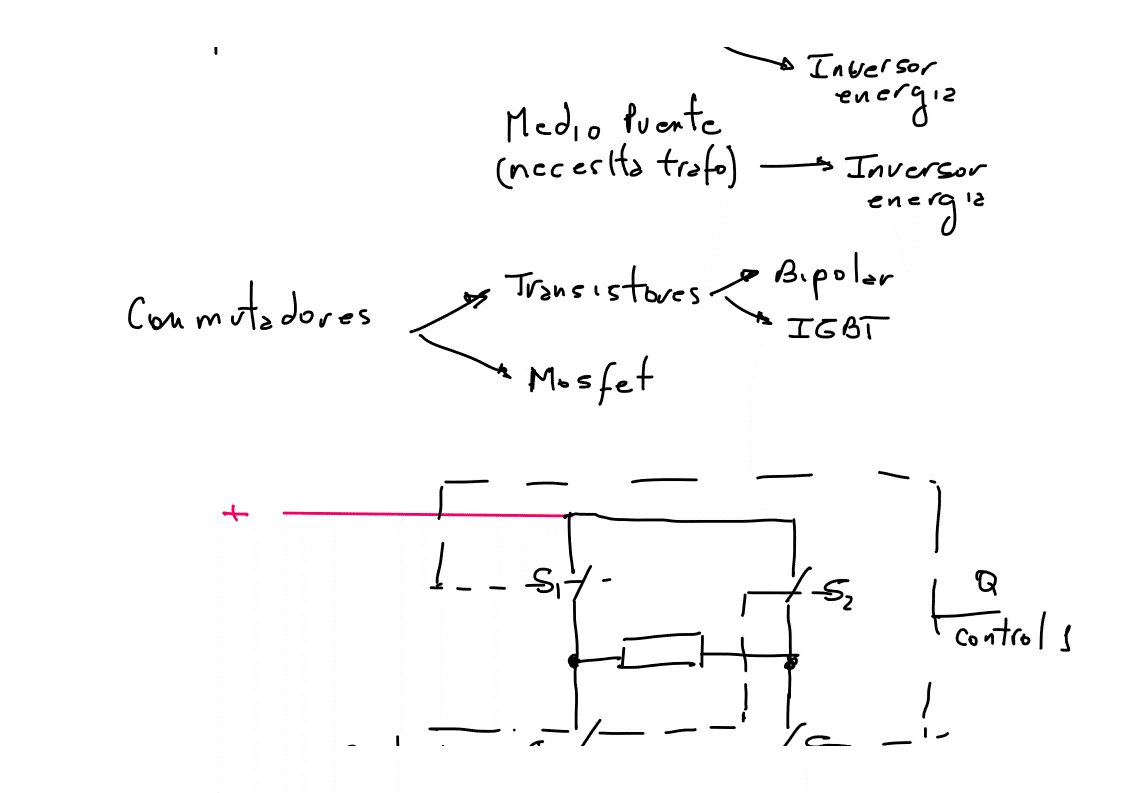 Inversor
energia
Medio Puente
(necesita trafo)
Inversor
energia
Conmutadores
Transistores
Bipolar
IGBT
Mosfet
+
S1
S2
Q
control 1